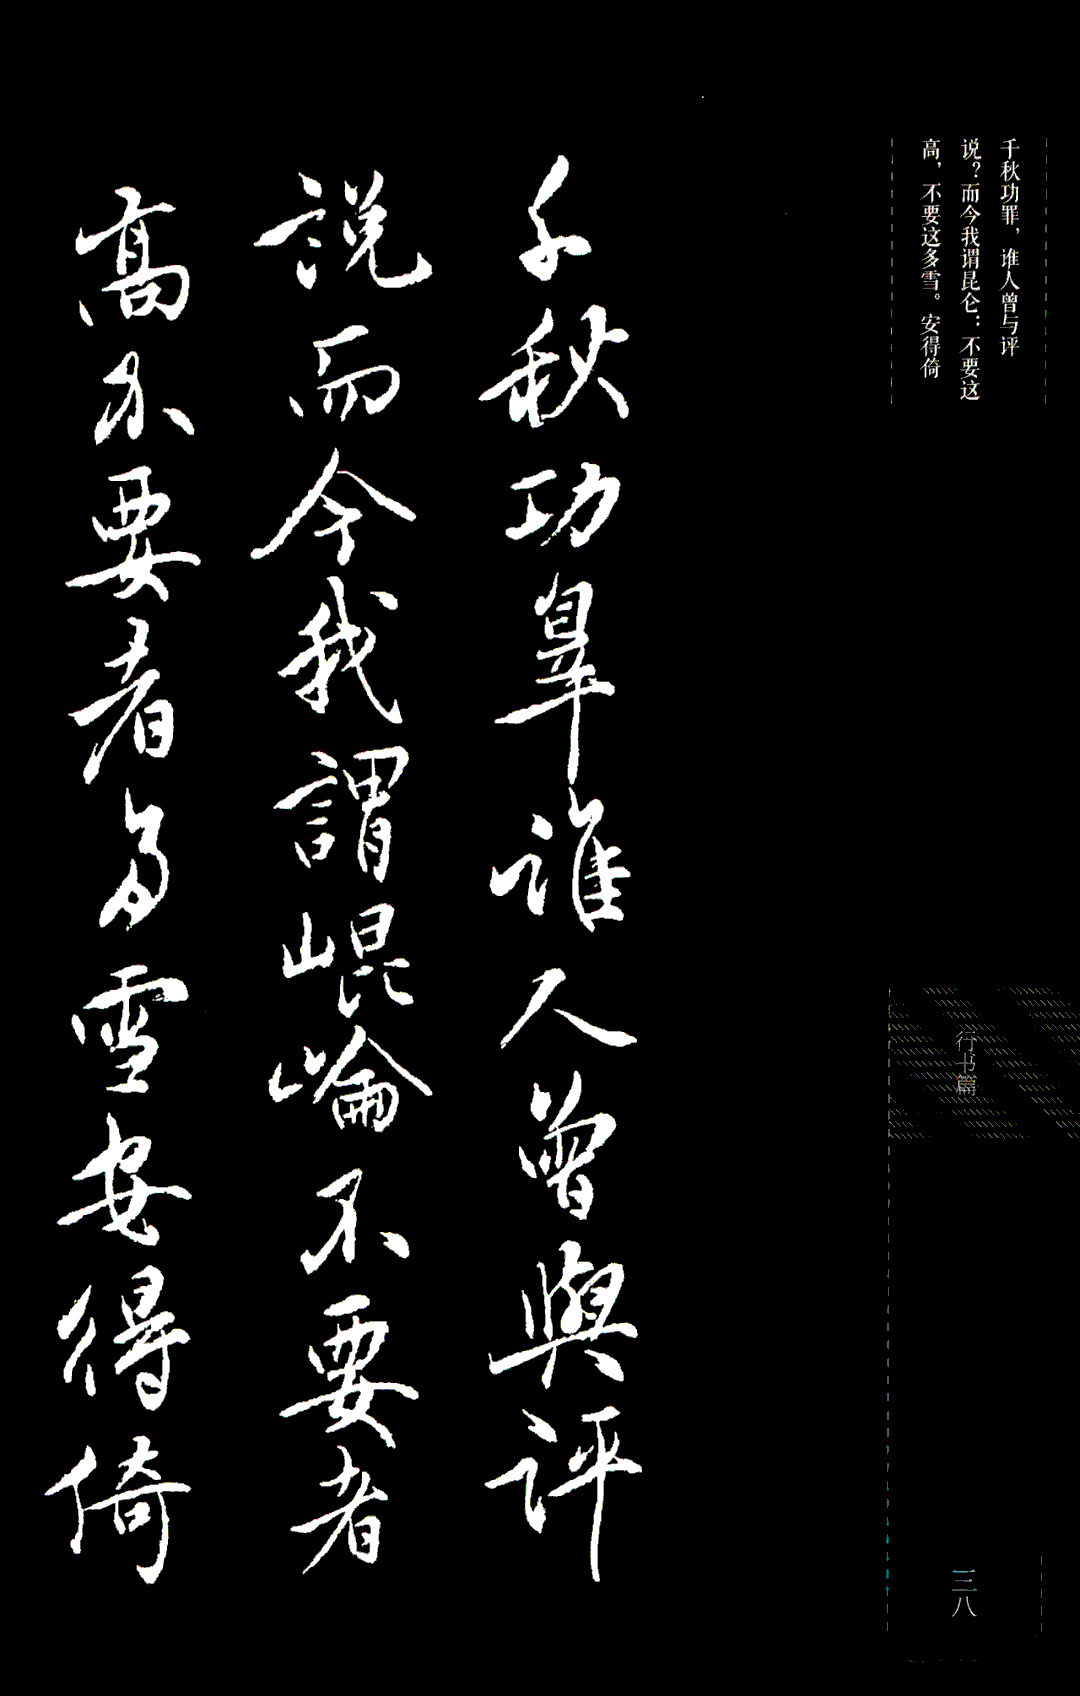 千秋功罪，谁人曾与评
说？而今我谓昆仑：不要这
高，不要这多雪。安得倚
千秋功辠誰人曾與評
説而今我謂崐崘不要者
高不要者多雪安得倚
行书篇
三八